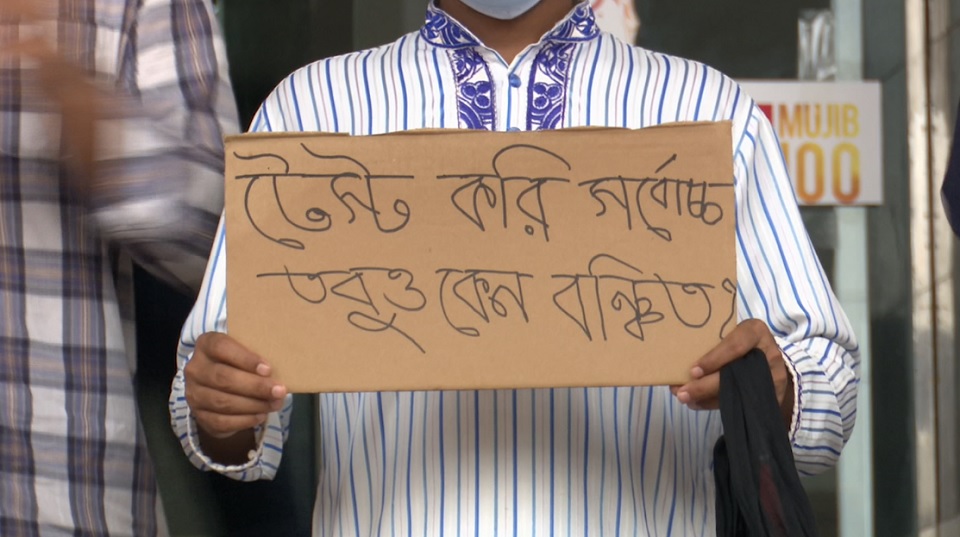 টেস্ট করি সর্বোচ্চ
তবুও কেন বঞ্চিত?
MUJIB
100